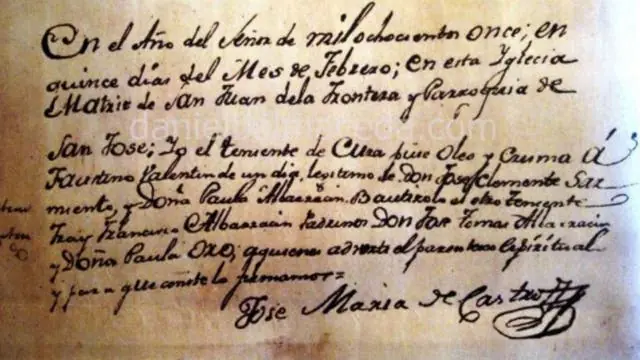 En el Año del Señor de mil ochocientos once; en
quince dias del Mes de Febrero; en esta Yglecia
Matriz de San Juan dela Frontera y Parroquia de
San Jose; Yo el teniente de Cura puse Oleo y Crisma á
Faustino Valentin de un dia, legitimo de Don Jose Clemente Sar
miento, y Doña Paula Albarracin. Bautizolo el otro Teniente
Fray Francisco Albarracin Padrinos Don Jose Tomas Albarracin
y Doña Paula Oro; aquienes adverti el parentesco Espiritual
y para que conste lo firmamos=
Jose Maria de Castro